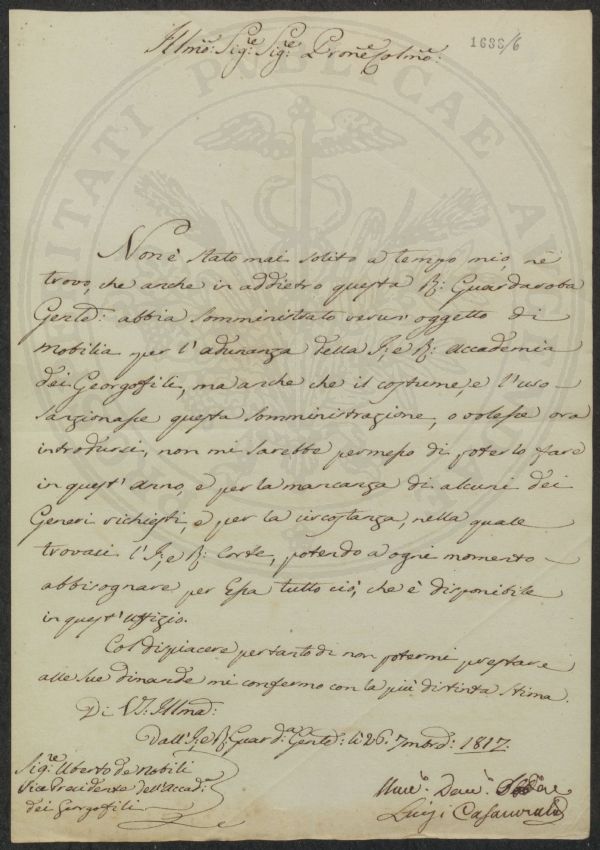 Illmo: Sigre: Sigre: Prone Colmo:
1688/6
Non è stato mai solito a tempo mio, nè
trovo, che anche in addietro questa R: Guardaroba
Genle: abbia somministrato verun' oggetto di
mobilia per l'adunanza della I. e R: Accademia
dei Georgofili, ma anche che il costume, e l'uso
sanzionasse questa somministrazione, o volesse ora
introdursi, non mi sarebbe permesso di poterlo fare
in quest' anno, e per la mancanza di alcuni dei
Generi richiesti, e per la circostanza, nella quale
trovasi l'I. e R: Corte, potendo a ogni momento
abbisognare per Essa tutto ciò, che è disponibile
in quest' uffizio.
Col dispiacere pertanto di non potermi prestare
alle sue dimande mi confermo con la più distinta stima.
Di VS: Illma:
Dall'I. e R: Guarda: Genle: li 26. 7mbre: 1817.
Sigre Uberto de Nobili
Vice Presidente dell'Accad:
dei Gorgofili
Devo:
Luigi
PUBLICAE